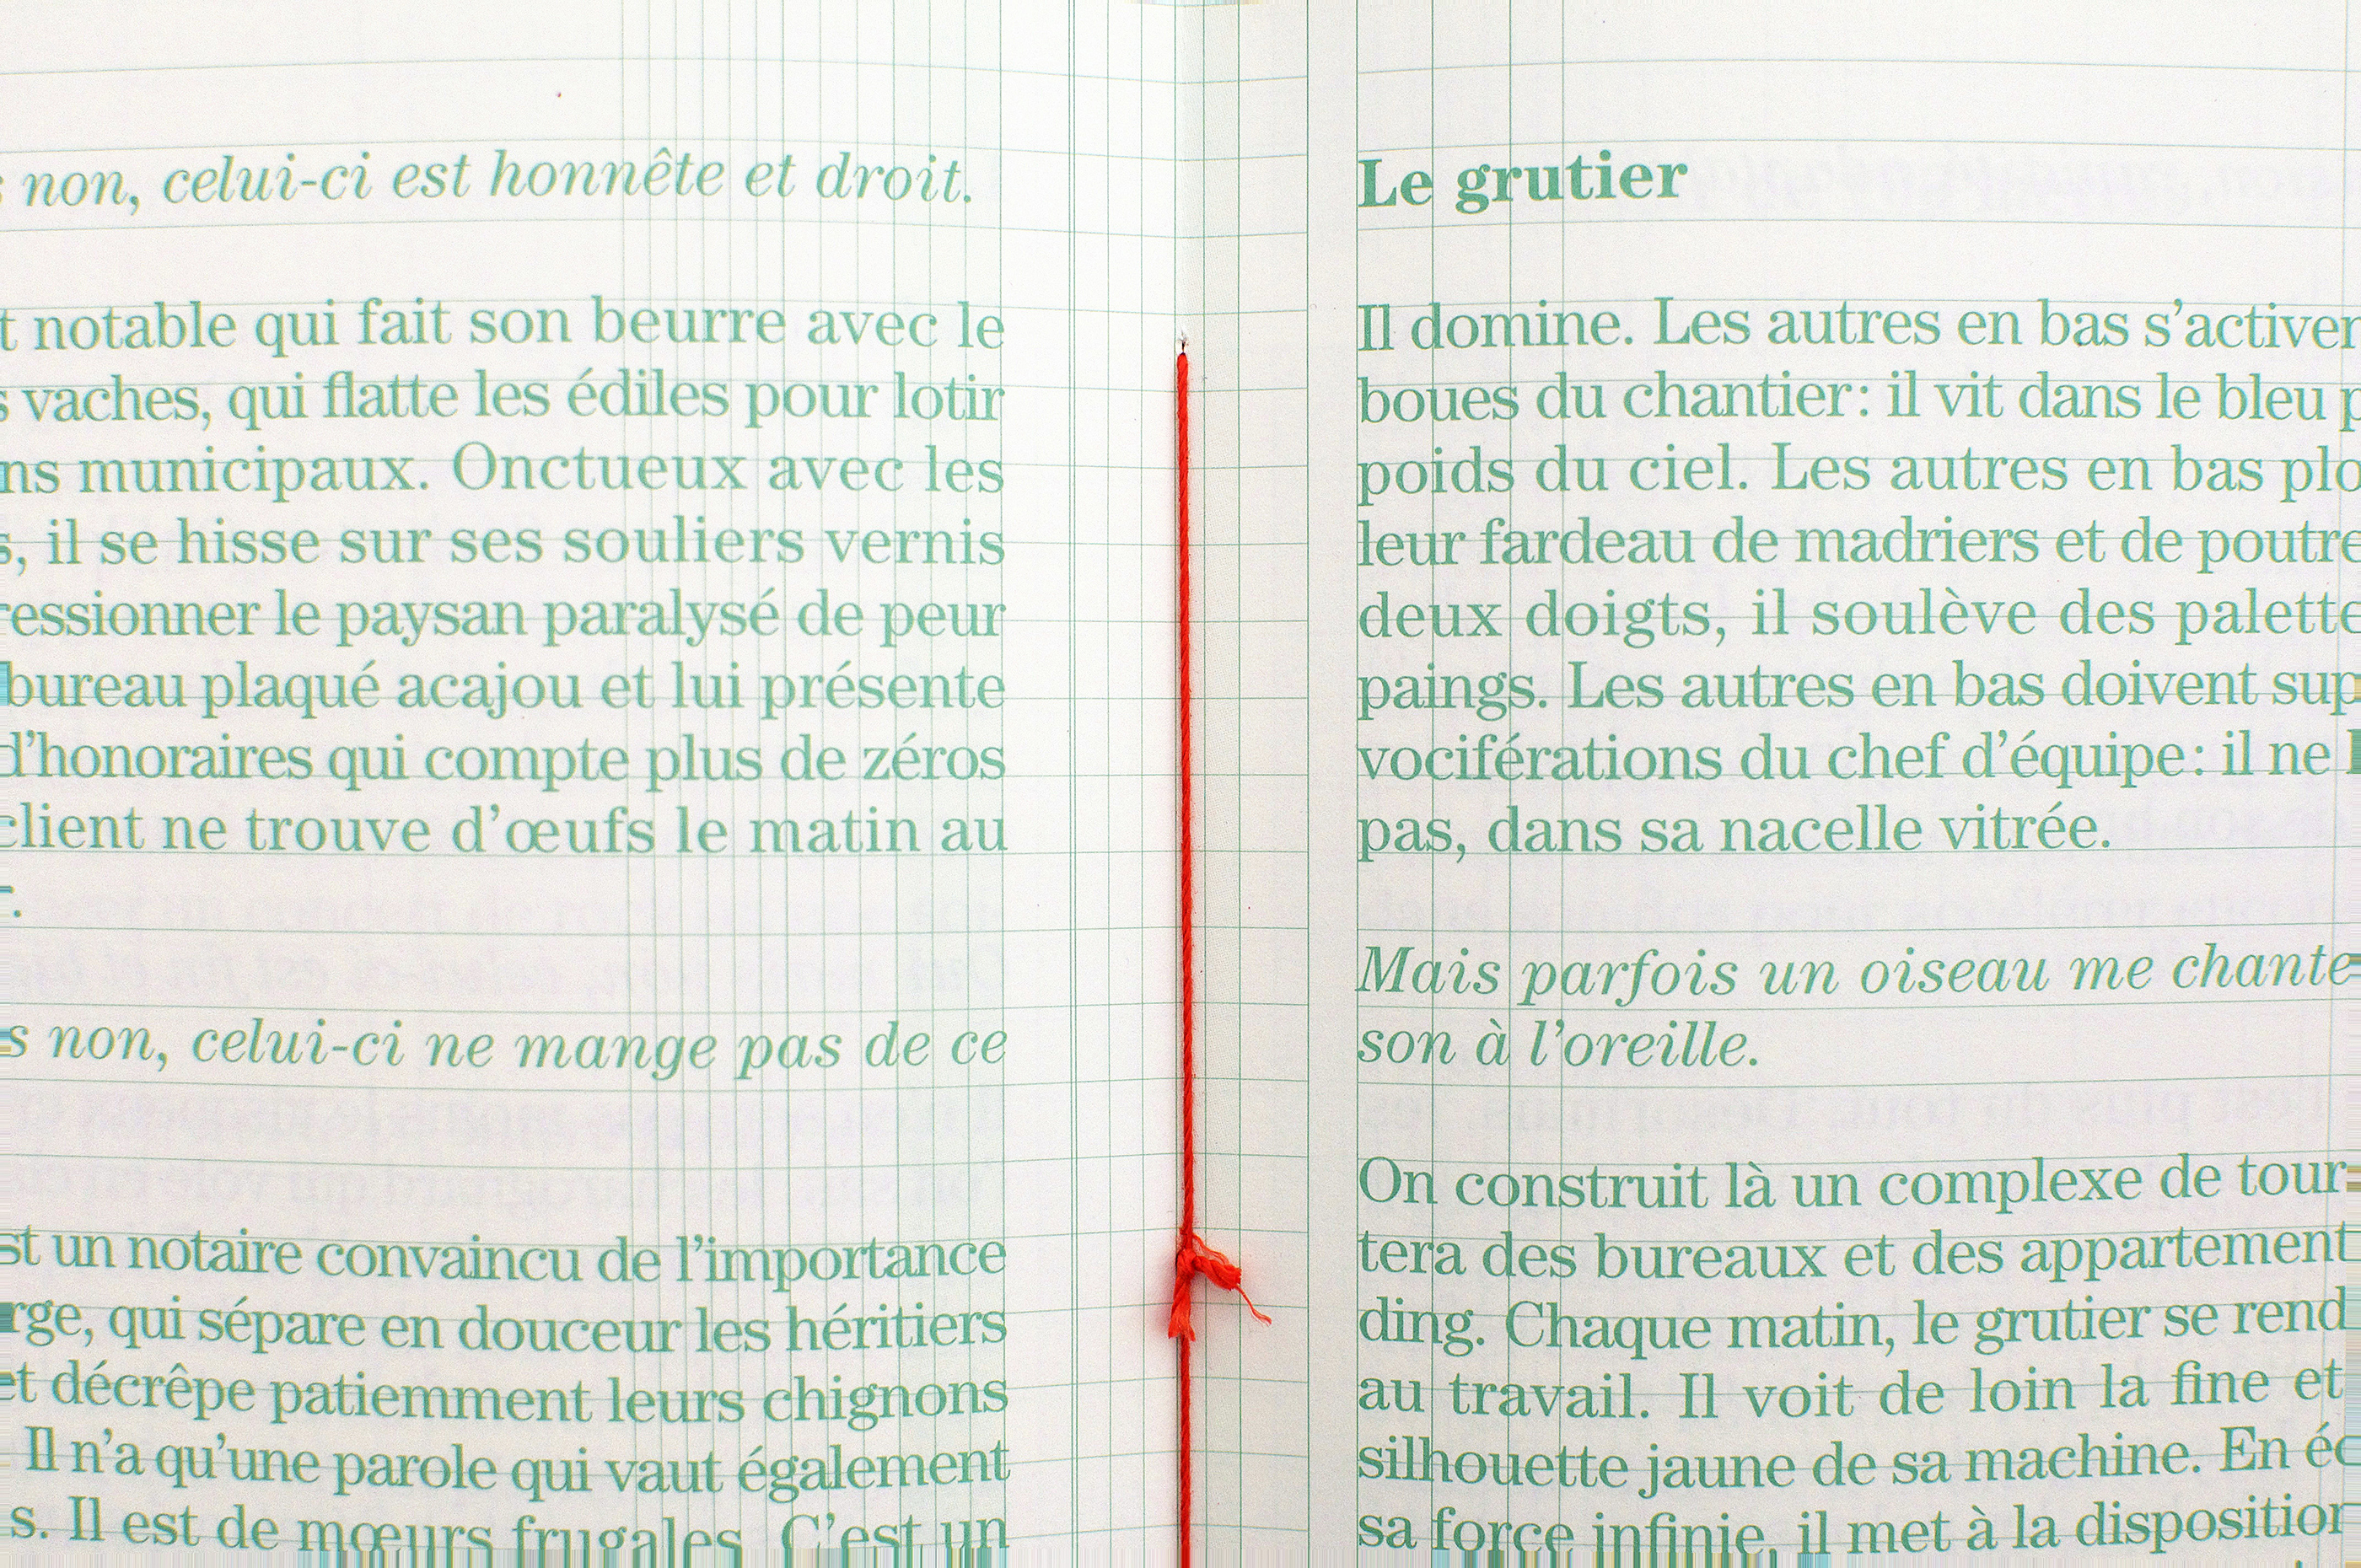 non, celui-ci est honnête et droit.
notable qui fait son beurre avec le
vaches, qui flatte les édiles pour lotir
municipaux. Onctueux avec les
il se hisse sur ses souliers vernis
le paysan paralysé de peur
bureau plaqué acajou et lui présente
d’honoraires qui compte plus de zéros
client ne trouve d’œufs le matin au
non, celui-ci ne mange pas de ce
un notaire convaincu de l’importance
qui sépare en douceur les héritiers
et décrêpe patiemment leurs chignons
Il n’a qu’une parole qui vaut également
Il est de mœurs frugales. C’est un
Le grutier
Il domine. Les autres en bas
boues du chantier : il vit dans le bleu
poids du ciel. Les autres en bas
leur fardeau de madriers et de
deux doigts, il soulève des
paings. Les autres en bas doivent
vociférations du chef d’équipe : il ne
pas, dans sa nacelle vitrée.
Mais parfois un oiseau me chante
son à l’oreille.
On construit là un complexe de
tera des bureaux et des
ding. Chaque matin, le grutier se rend
au travail. Il voit de loin la fine et
silhouette jaune de sa machine. En
sa force infinie, il met à la disposition